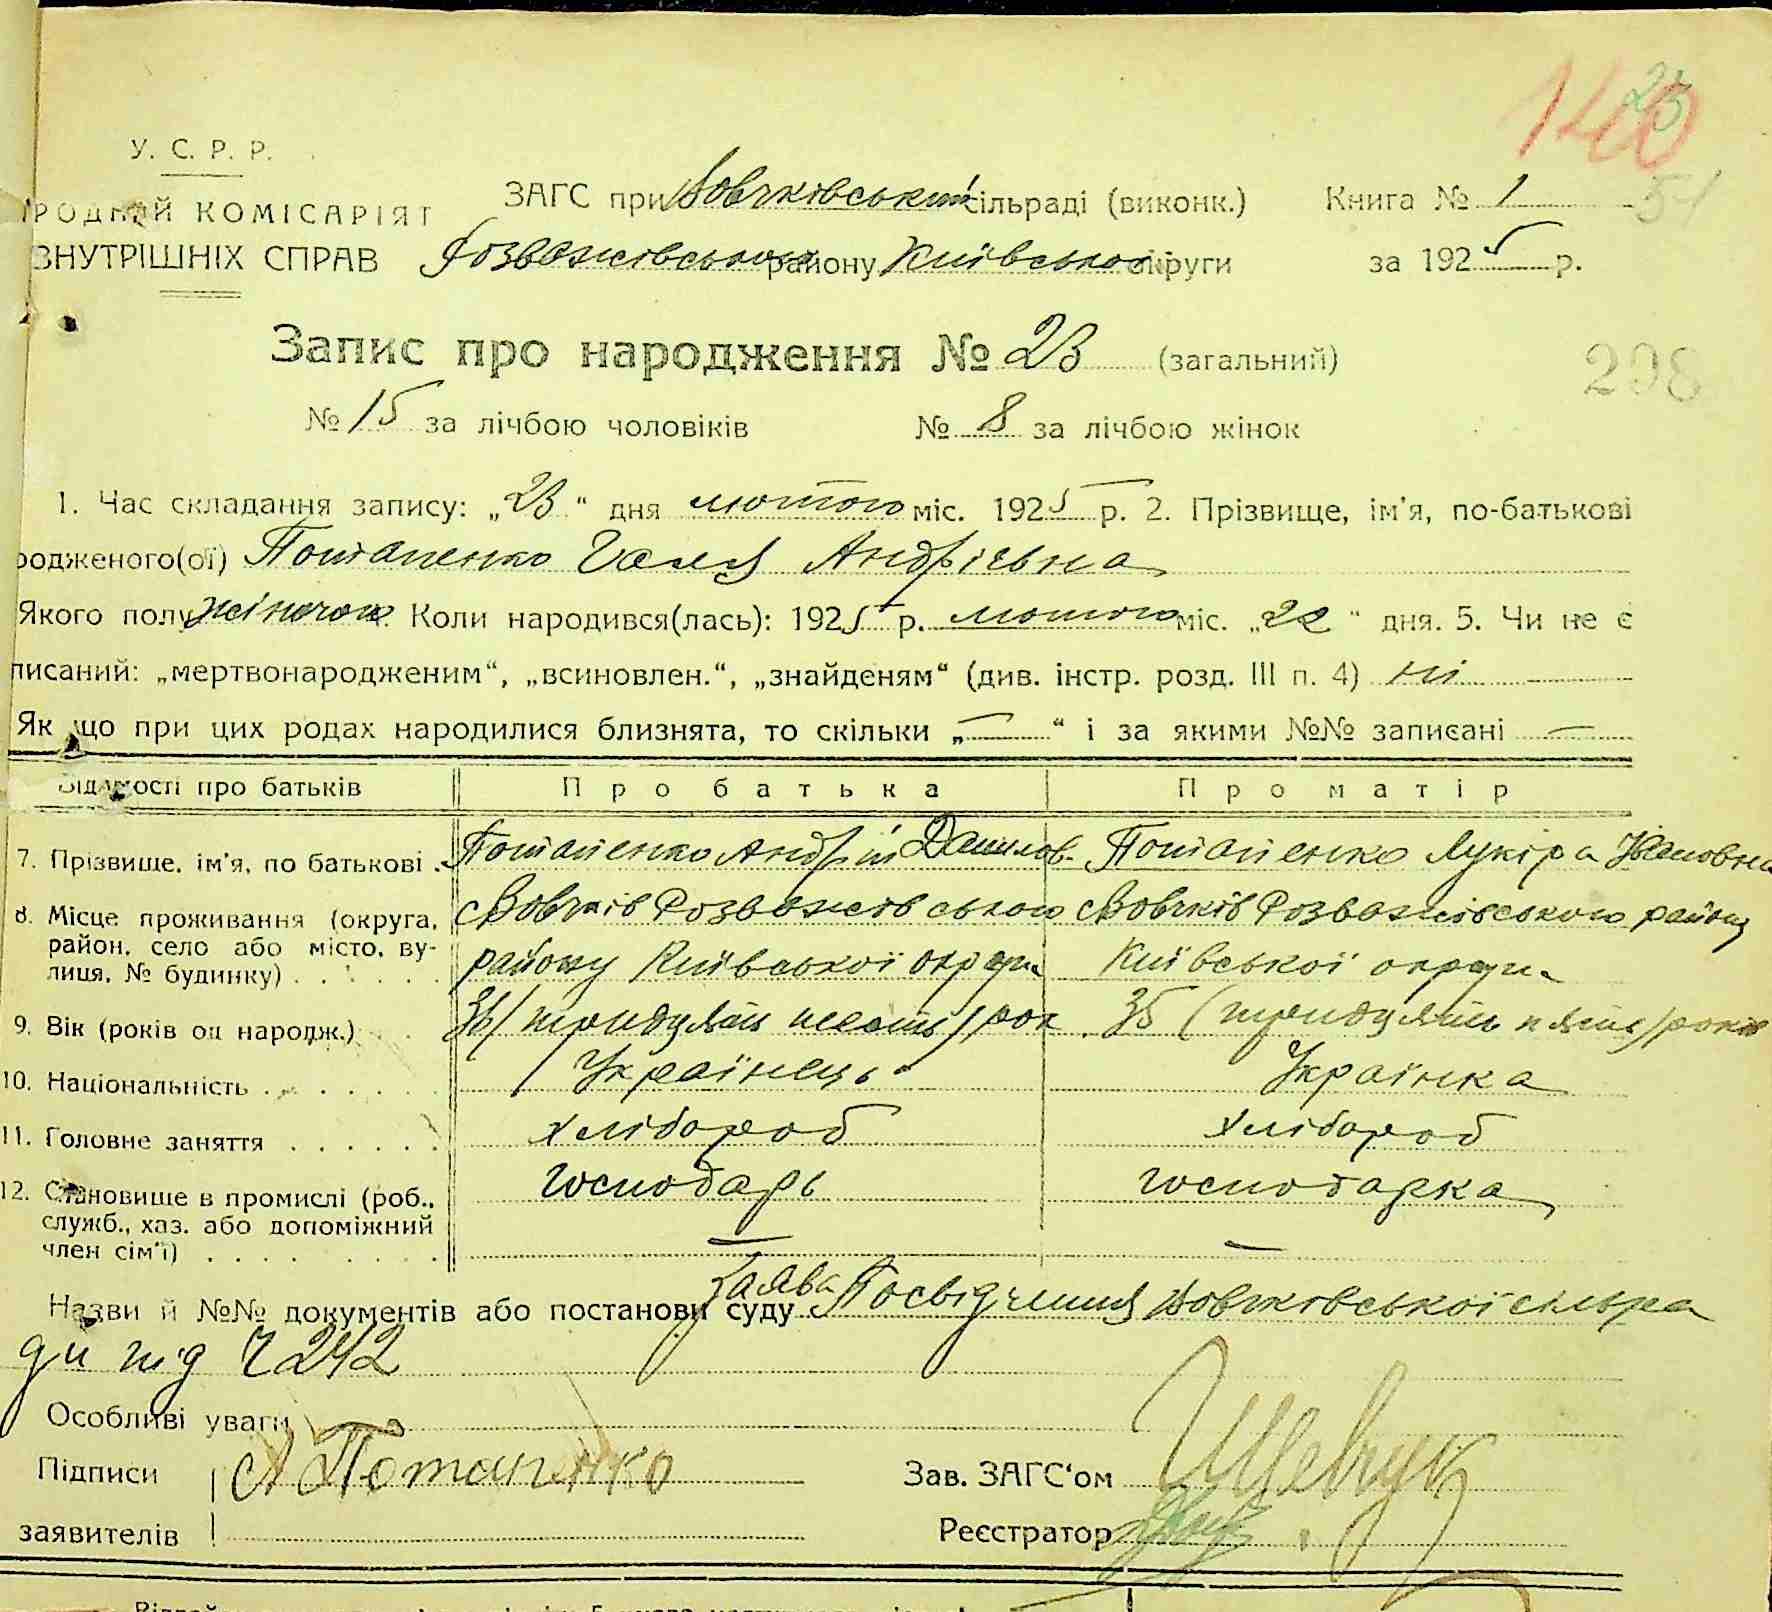 140 23
У. С. Р. Р.
РОДНИЙ КОМІСАРІЯТ
ВНУТРІШНІХ СПРАВ
ЗАГС при Вовчківський сільраді (виконк.)
Розважівського району Київської округи
Книга № 1
51
за 1925 р.
Запис про народження № 23 (загальний)
298
№ 15 за лічбою чоловіків № 8 за лічбою жінок
1. Час складання запису: „23“ дня лютого міс. 1925 р. 2. Прізвище, ім'я, по-батькові
родженого(ої) Потапенко Галя Андріївна
Якого полу жіночого Коли народився(лась): 1925 р. лютого міс. „22“ дня. 5. Чи не є
писаний: „мертвонародженим“, „всиновлен.“, „знайденям“ (див. інстр. розд. III п. 4) ні
Як що при цих родах народилися близнята, то скільки „—“ і за якими №№ записані —
Відомості про батьків Про батька Про матір
7. Прізвище, ім'я, по батькові . Потапенко Андрій Данилов. Потапенко Лукіра Івановна
8. Місце проживання (округа, с Вовчків Розважівського с Вовчків Розважівського району
район, село або місто, ву-
лиця, № будинку) . . . . . району Київської округи Київської округи
9. Вік (років од народж.) . . 36 (тридцять шость) рок. 35 (тридцять пять) років
10. Національність . . . . . . Українець Українка
11. Головне заняття . . . . . . хлібороб хлібороб
12. Становище в промислі (роб., господарь господарка
служб., хаз. або допоміжний
член сім'ї) . . . . . . — —
Назви й №№ документів або постанови суду Заява Посвідчення Вовчківської сільра
ди під Ч 242
Особливі уваги
Підписи А Потапенко Зав. ЗАГС'ом Шевчук
заявителів Реєстратор